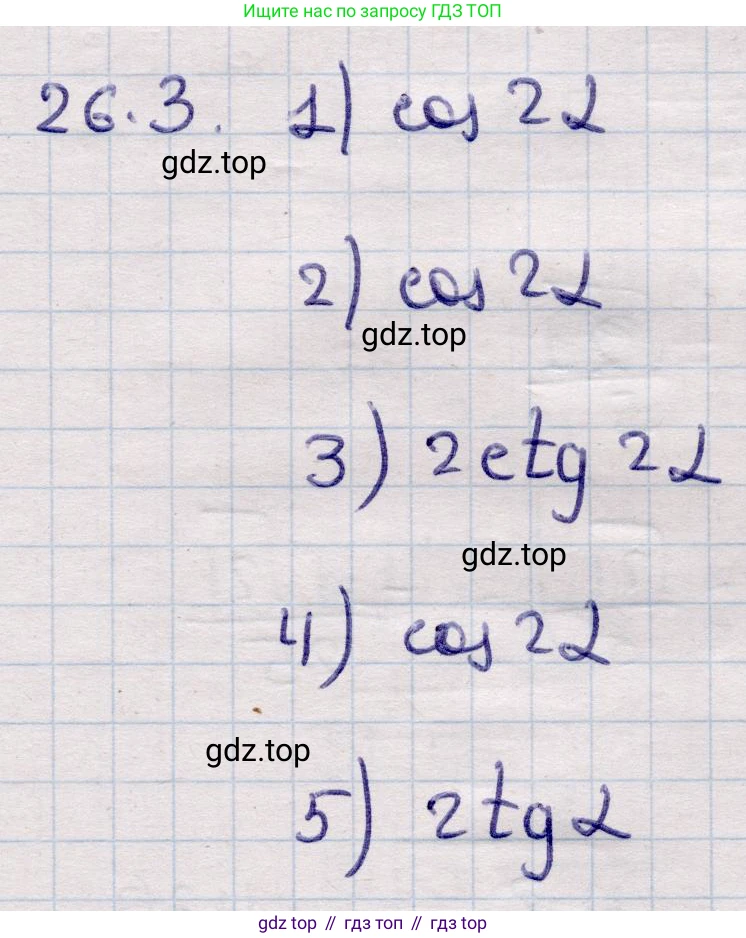 Ищите нас по запросу ГДЗ ТОП
26.3. 1) cos 2α
gdz.top
2) cos 2α
gdz.top
3) 2ctg 2α
gdz.top
4) cos 2α
gdz.top
5) 2tgα
gdz top // гдз топ // гдз top